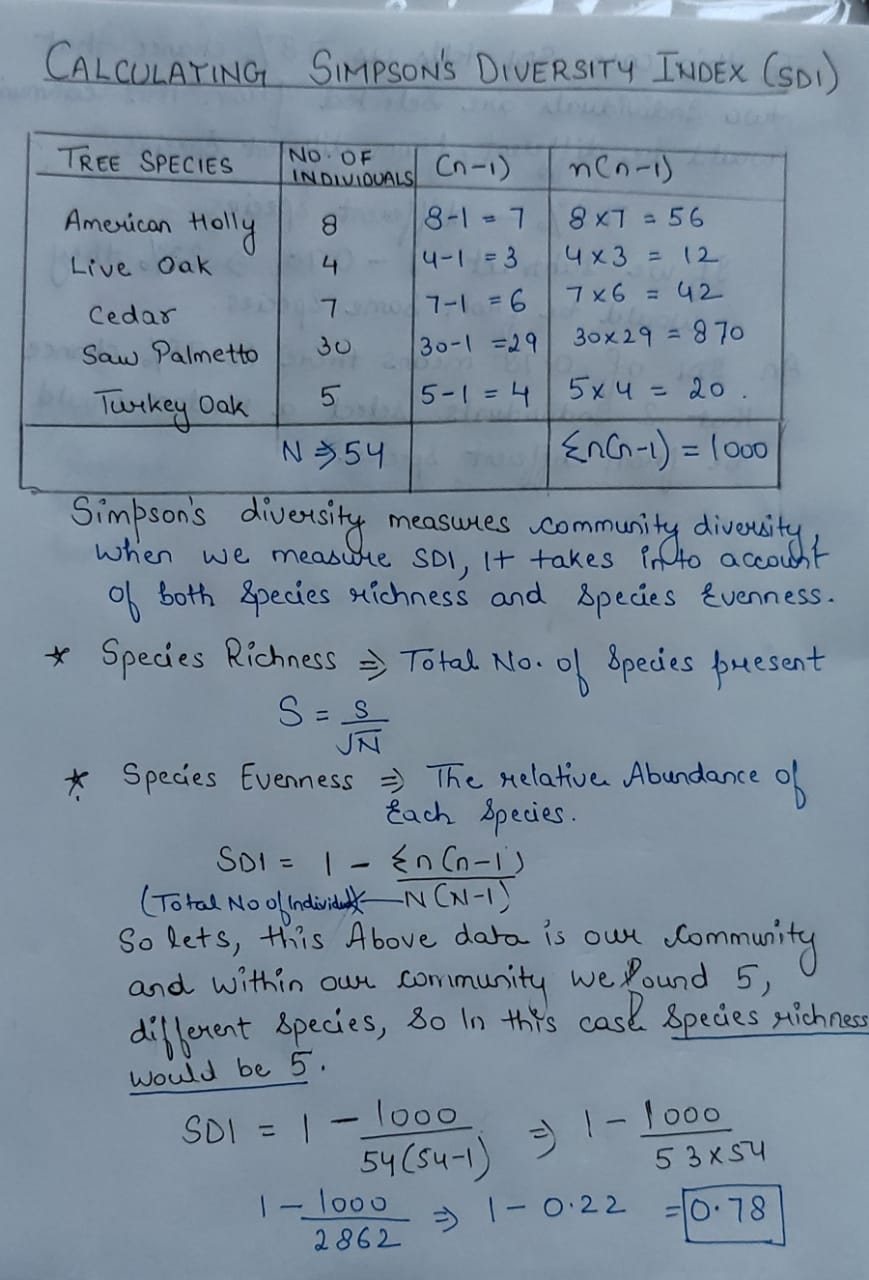 CALCULATING SIMPSON'S DIVERSITY INDEX (SDI)
TREE SPECIES NO. OF INDIVIDUALS (n-1) n(n-1)
American Holly 8 8-1 = 7 8x7 = 56
Live Oak 4 4-1 = 3 4x3 = 12
Cedar 7 7-1 = 6 7x6 = 42
Saw Palmetto 30 30-1 =29 30x29 = 870
Turkey Oak 5 5-1 = 4 5x4 = 20.
N ⇒ 54 Σn(n-1) = 1000
Simpson's diversity measures community diversity,
when we measure SDI, It takes into account
of both Species richness and Species Evenness.
* Species Richness ⇒ Total No. of Species present
S = s/√N
* Species Evenness ⇒ The relative Abundance of
Each Species.
SDI = 1 - Σn(n-1)/N(N-1)
(Total No of Individu
So lets, this Above data is our Community
and within our community we found 5,
different Species, So In this case Species richness
would be 5.
SDI = 1 - 1000/54(54-1) ⇒ 1 - 1000/53x54
1 - 1000/2862 ⇒ 1 - 0.22 = 0.78